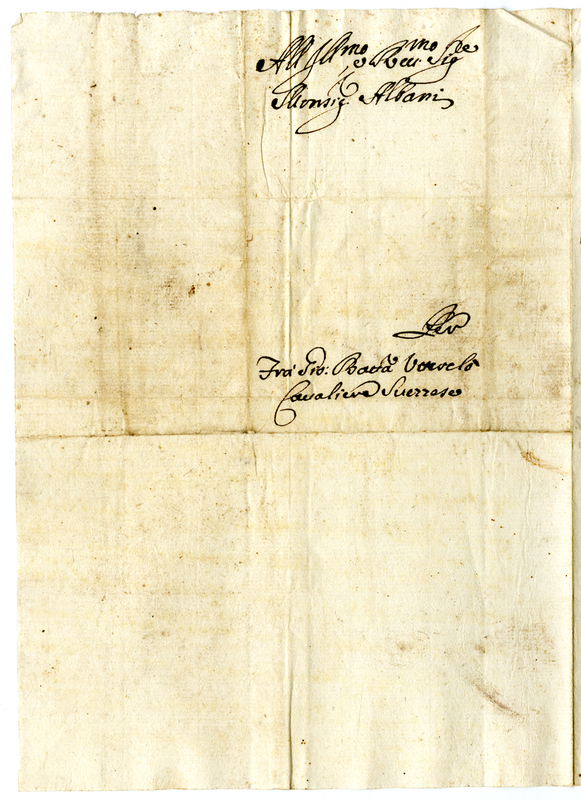 All' Ill.mo e Reu.mo Sig.re
Monsig.r Albani
Per
Frà Gio: Batt.a Vovelo
Cavaliere Guerrese